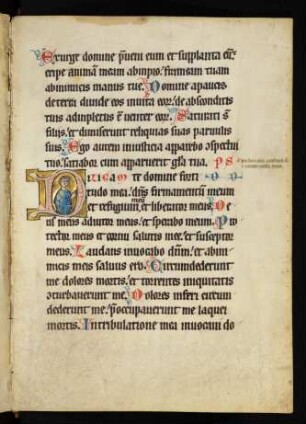 Exurge domine p̄veni eum et supplanta eū:
eripe animā meam ab impio. frameam tuam
ab inimicis manus tue. Domine a paucis
de terra divide eos in vita eor̄: de absconditis
tuis adimpletus ē venter eor̄. Saturati s̄
filiis: et dimiserunt reliquias suas parvulis
suis. Ego autem in iusticia apparebo cōspectui
tuo: satiabor cum apparuerit gl̄a tua. PS
Diligam te domine forti
tudo mea: dn̄s firmamentum meum
et refugium meum et liberator meus. De
us meus adiutor meus: et sperabo in eum. Pro
tector meus et cornu salutis mee: et susceptor
meus. Laudans invocabo dn̄m: et ab ini
micis meis salvus ero. Circumdederunt
me dolores mortis: et torrentes iniquitatis
conturbaverunt me. Dolores inferi circum
dederunt me: p̄occupaverunt me laquei
mortis. In tribulatione mea invocavi do